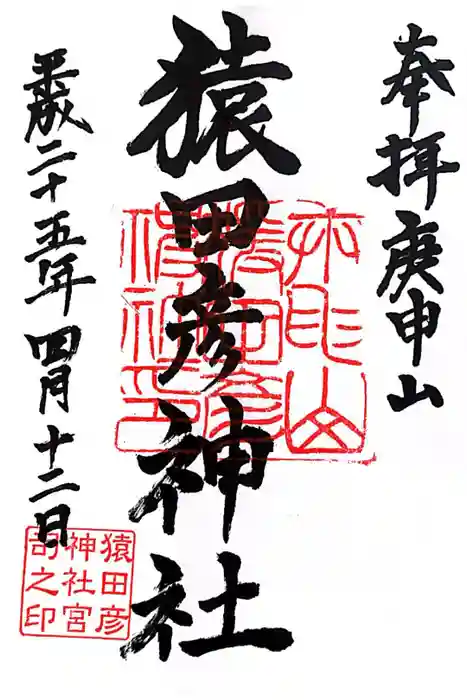 奉拝 庚申山
猿田彦神社
平成二十五年四月十二日
猿田彦
神社宮
司之印